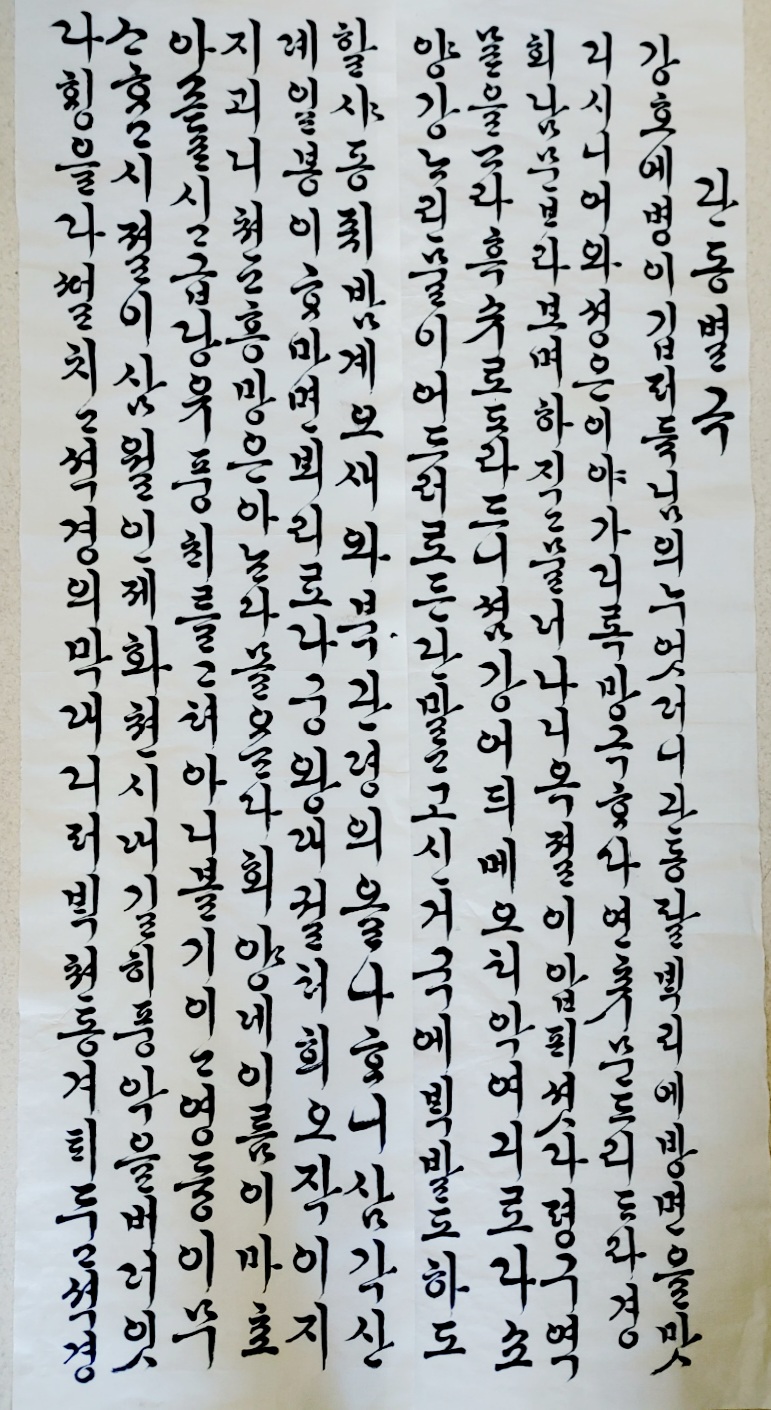 관동별곡
강호에병이깁퍼듁님의누엇더니관동팔빅리에방면을맛
디시니어와셩은이야가디록망극ᄒᆞ다연츄문드리ᄃᆞ라경
회남문ᄇᆞ라보며하직고믈너나니옥졀이압픠셧다평구역
ᄆᆞᆯ을ᄀᆞ라흑슈로도라드니셤강어듸메오티악여긔로다쇼
양강ᄂᆞ린믈이어드러로든단말고신거국에빅발도하도
할샤동쥐밤계오새와븍관뎡의올나ᄒᆞ니삼각산
뎨일봉이ᄒᆞ마면뵈리로다궁왕대궐터희오쟉이지
지괴니쳔고흥망은아ᄂᆞᆫ다몰ᄋᆞᄂᆞᆫ다회양녜이름이마초
아ᄀᆞᄐᆞᆯ시고급댱유풍ᄎᆡ를고텨아니볼기이고영듕이무
ᄉᆞᄒᆞ고시졀이삼월인제화쳔시내길히풍악을버더잇
다횡을다썰치고셕경의막대디퍼빅쳔동겨틔두고셕경